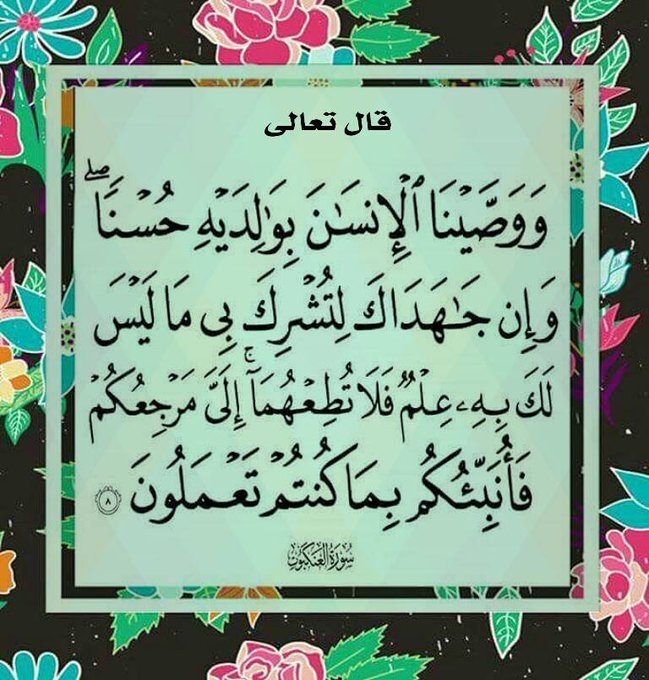 قال تعالى
وَوَصَّيْنَا ٱلْإِنسَـٰنَ بِوَٰلِدَيْهِ حُسْنًا ۖ
وَإِن جَـٰهَدَاكَ لِتُشْرِكَ بِى مَا لَيْسَ
لَكَ بِهِۦ عِلْمٌ فَلَا تُطِعْهُمَآ ۚ إِلَىَّ مَرْجِعُكُمْ
فَأُنَبِّئُكُم بِمَا كُنتُمْ تَعْمَلُونَ ٨
سُورَةُ العَنكَبُوتِ